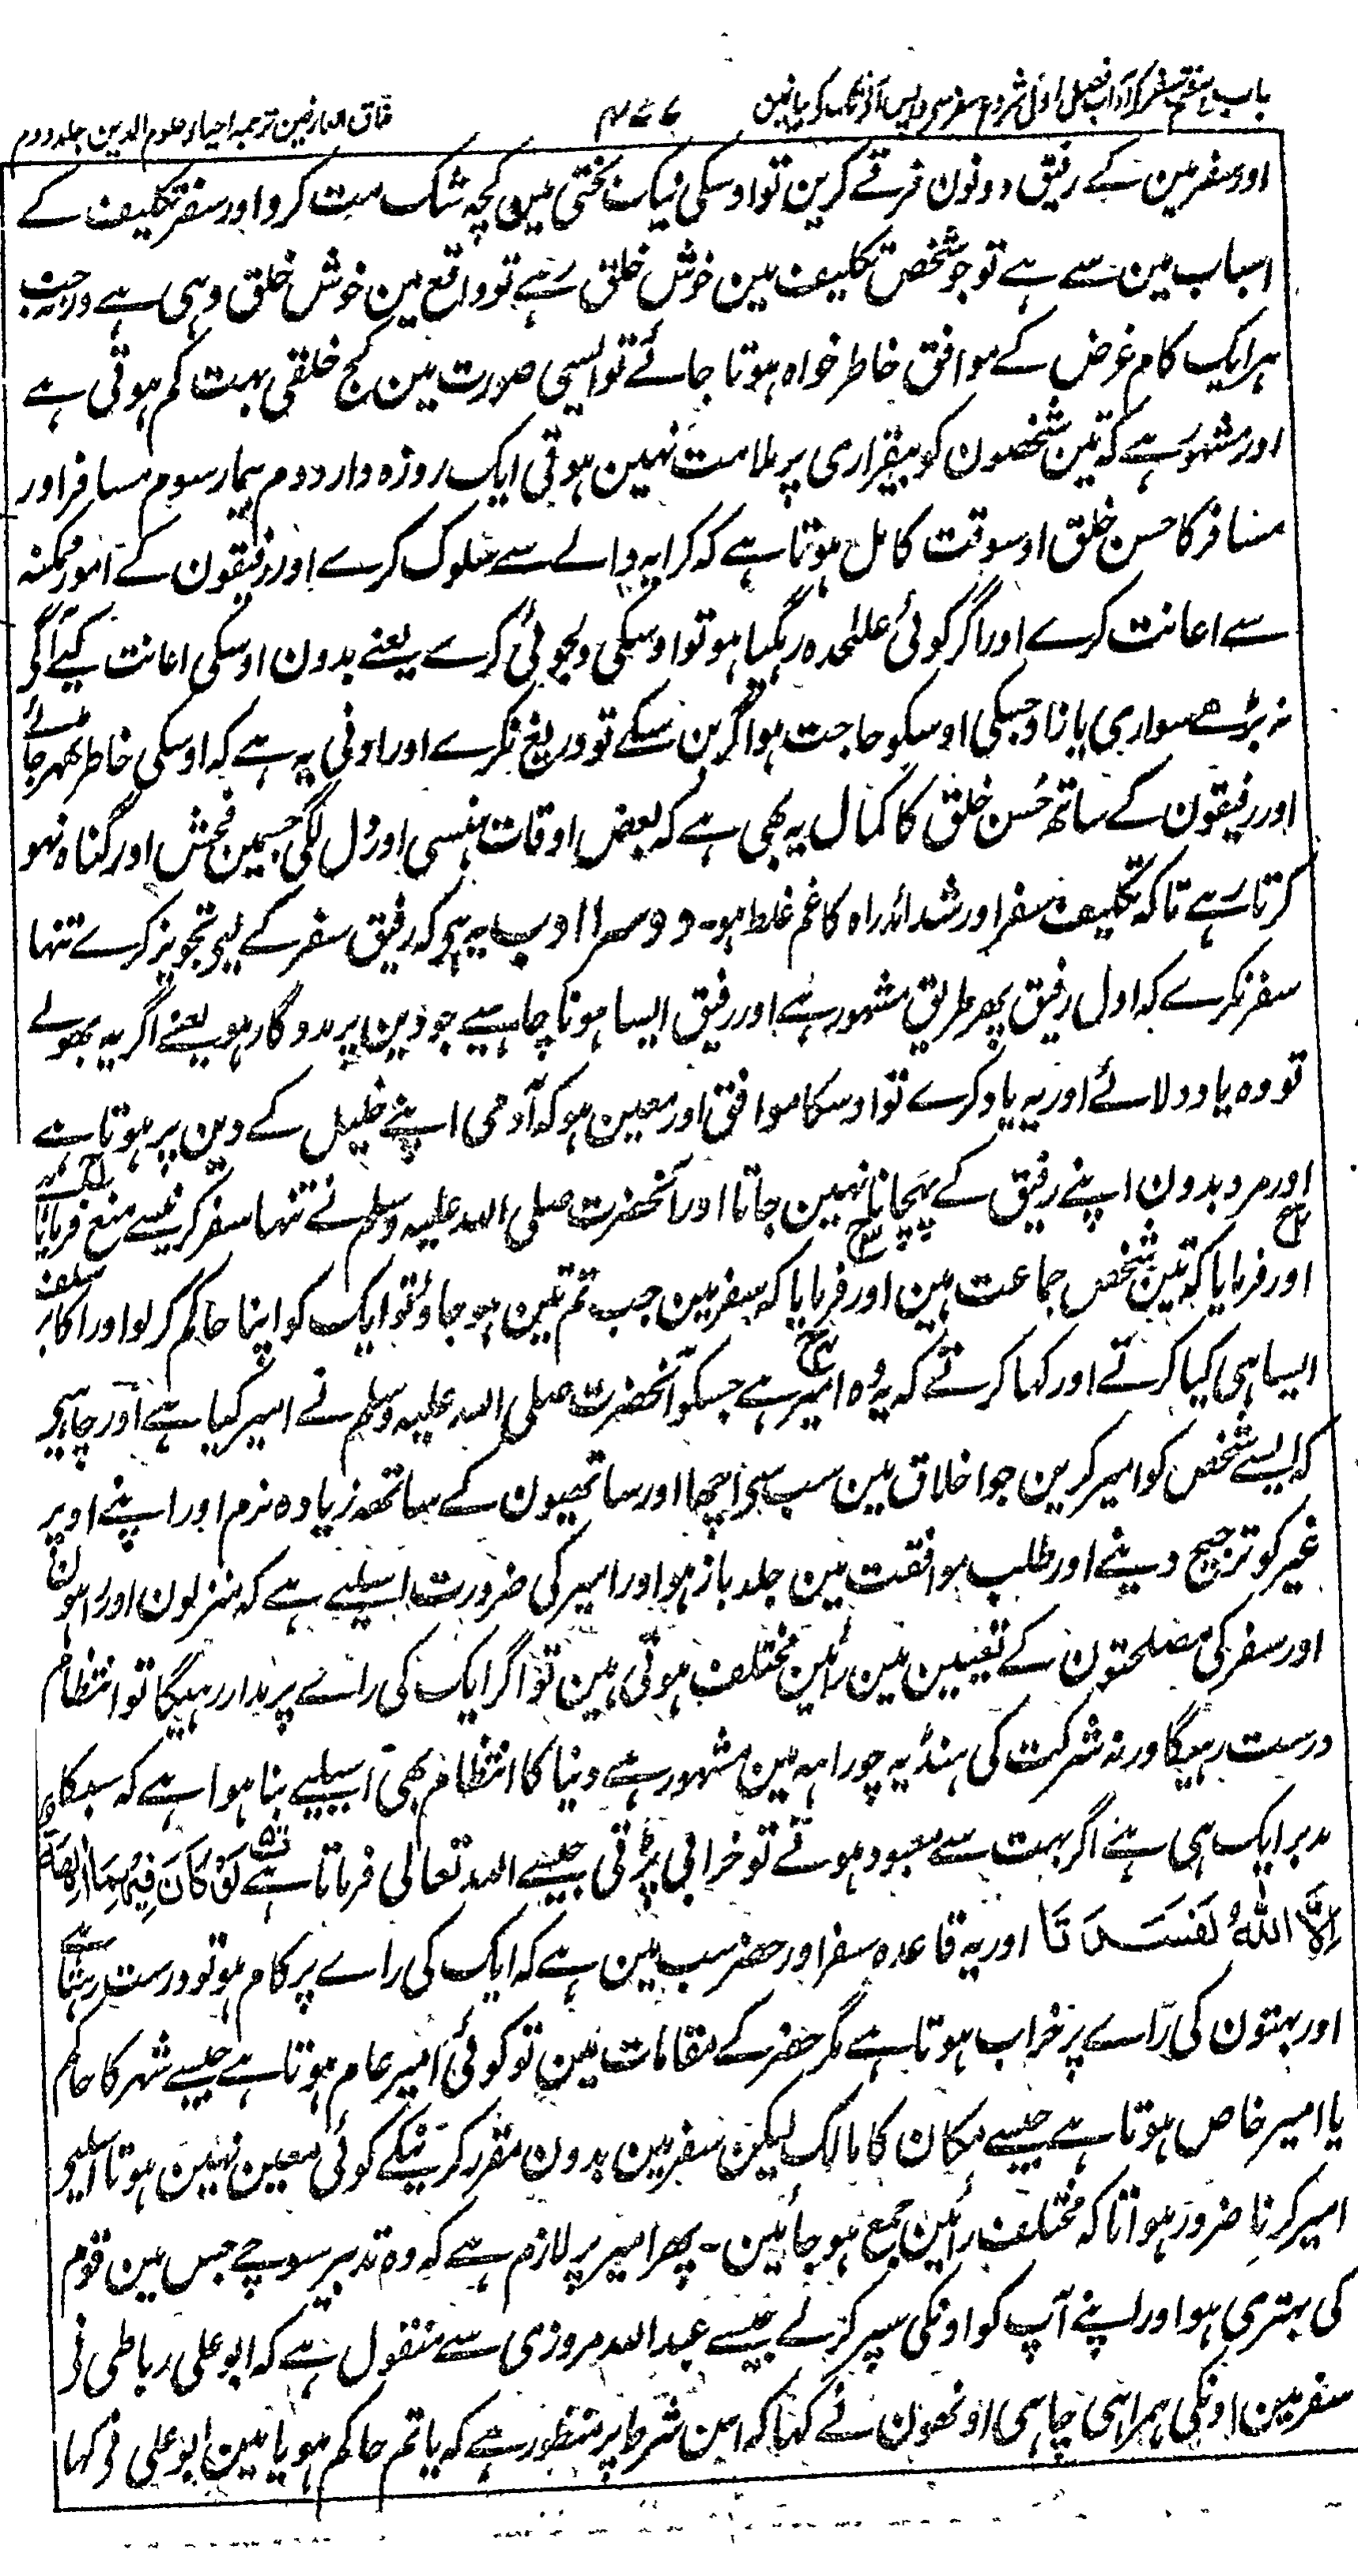 باب ہفتم سفر کے آداب فصل اول شروع سفر سے واپس آنے تک کے بیان مین ۴۷۷ مذاق العارفین ترجمہ احیاء علوم الدین جلد دوم
اور سفر مین کے رفیق دونون فرقے کرین تو اوسکی نیک بختی مین کچھ شک مت کرو اور سفر تکلیف کے
اسباب مین سے ہے تو جو شخص تکلیف مین خوش خلق رہے تو واقع مین خوش خلق وہی ہے ورنہ جب
ہر ایک کام غرض کے موافق خاطر خواہ ہوتا جائے تو ایسی صورت مین کج خلقی بہت کم ہوتی ہے
اور مشہور ہے کہ تین شخصون کو بیقراری پر ملامت نہین ہوتی ایک روزہ دار دوم بیمار سوم مسافر اور
مسافر کا حسن خلق اوسوقت کامل ہوتا ہے کہ کرایہ والے سے سلوک کرے اور رفیقون کے امور ممکنہ
سے اعانت کرے اور اگر کوئی علٰحدہ رہگیا ہو تو اوسکی دلجوئی کرے یعنے بدون اوسکی اعانت کیے آگے
نہ بڑھے سواری یا ناو جسکی اوسکو حاجت ہو اگر بن سکے تو دریغ نکرے اور اونی یہ ہے کہ اوسکی خاطر ٹھہر جائے
اور رفیقون کے ساتھ حُسن خلق کا کمال یہ بھی ہے کہ بعض اوقات ہنسی اور دل لگی جسمین فحش اور گناہ نہو
کرتا رہے تاکہ تکلیف سفر اور شدائد راہ کا غم غلط ہو۔ دوسرا ادب یہ ہی کہ رفیق سفر کے لیے تجویز کرے تنہا
سفر نکرے کہ اول رفیق پھر طریق مشہور ہے اور رفیق ایسا ہونا چاہیے جو دین پر مددگار ہو یعنے اگر یہ بھولے
تو وہ یاد دلائے اور یہ یاد کرے تو اوسکا موافق اور معین ہو کہ آدمی اپنے خلیل کے دین پر ہوتا ہے
اور مرد بدون اپنے رفیق کے پہچانا نہین جاتا اور آنحضرت صلی اللہ علیہ وسلم نے تنہا سفر کرنیسے منع فرمایا
اور فرمایا کہ تین شخص جماعت ہین اور فرمایا کہ سفر مین جب تم تین ہو جاؤ تو ایک کو اپنا حاکم کر لو اور اکابر سلف
ایسا ہی کیا کرتے اور کہا کرتے کہ یہ وہ امیر ہے جسکو آنحضرت صلی اللہ علیہ وسلم نے امیر کیا ہے اور چاہیے
کہ ایسے شخص کو امیر کرین جو اخلاق مین سب سے اچھا اور ساتھیون کے ساتھ زیادہ نرم اور اپنے اوپر
غیر کو ترجیح دینے اور طلب موافقت مین جلد باز ہو اور امیر کی ضرورت اسلیے ہے کہ منزلون اور راہون
اور سفر کی مصلحتون کے تعیین مین رائین مختلف ہوتی ہین تو اگر ایک کی راے پر مدار رہیگا تو انتظام
درست رہیگا ورنہ شرکت کی ہنڈیہ چوراہہ مین مشہور ہے دنیا کا انتظام بھی اسیلیے بنا ہوا ہے کہ سبکا
مدبر ایک ہی ہے اگر بہت سے معبود ہوتے تو خرابی پڑتی جیسے اللہ تعالی فرماتا ہے لَوْ كَانَ فِيْهِمَا اٰلِهَةٌ
اِلَّا اللّٰهُ لَفَسَدَتَا اور یہ قاعدہ سفر اور حضر سب مین ہے کہ ایک کی راے پر کام ہو تو درست رہتا ہے
اور بہتون کی راے پر خراب ہوتا ہے مگر حضر کے مقامات مین تو کوئی امیر عام ہوتا ہے جیسے شہر کا حاکم
یا امیر خاص ہوتا ہے جیسے مکان کا مالک لیکن سفر مین بدون مقرر کرنیکے کوئی معین نہین ہوتا اسلیے
امیر کرنا ضرور ہوا تاکہ مختلف رائین جمع ہو جائین۔ پھر امیر پر لازم ہے کہ وہ تدبیر سوچے جس مین قوم
کی بہتری ہو اور اپنے آپ کو اونکی سپر کرلے جیسے عبد اللہ مروزی سے منقول ہے کہ ابو علی رباطی نے
سفر مین اونکی ہمراہی چاہی اونھون نے کہا کہ اس شرط پر منظور ہے کہ یا تم حاکم ہو یا مین ابو علی نے کہا